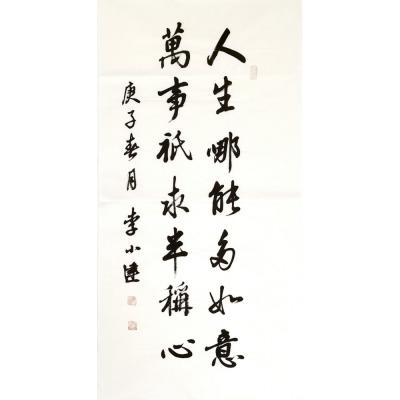 人生哪能多如意
萬事祇求半稱心
庚子春月 李小